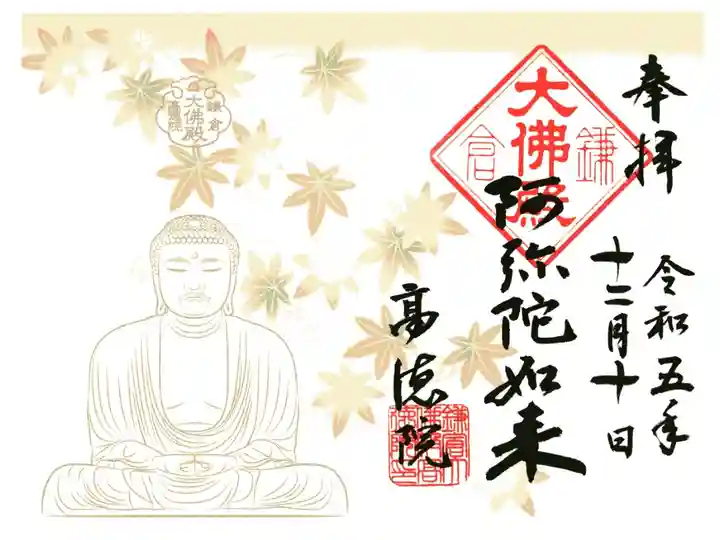 奉拝
令和五年
十二月十日
大佛殿
鎌倉
阿弥陀如来
高徳院
鎌倉
大佛殿
高徳院